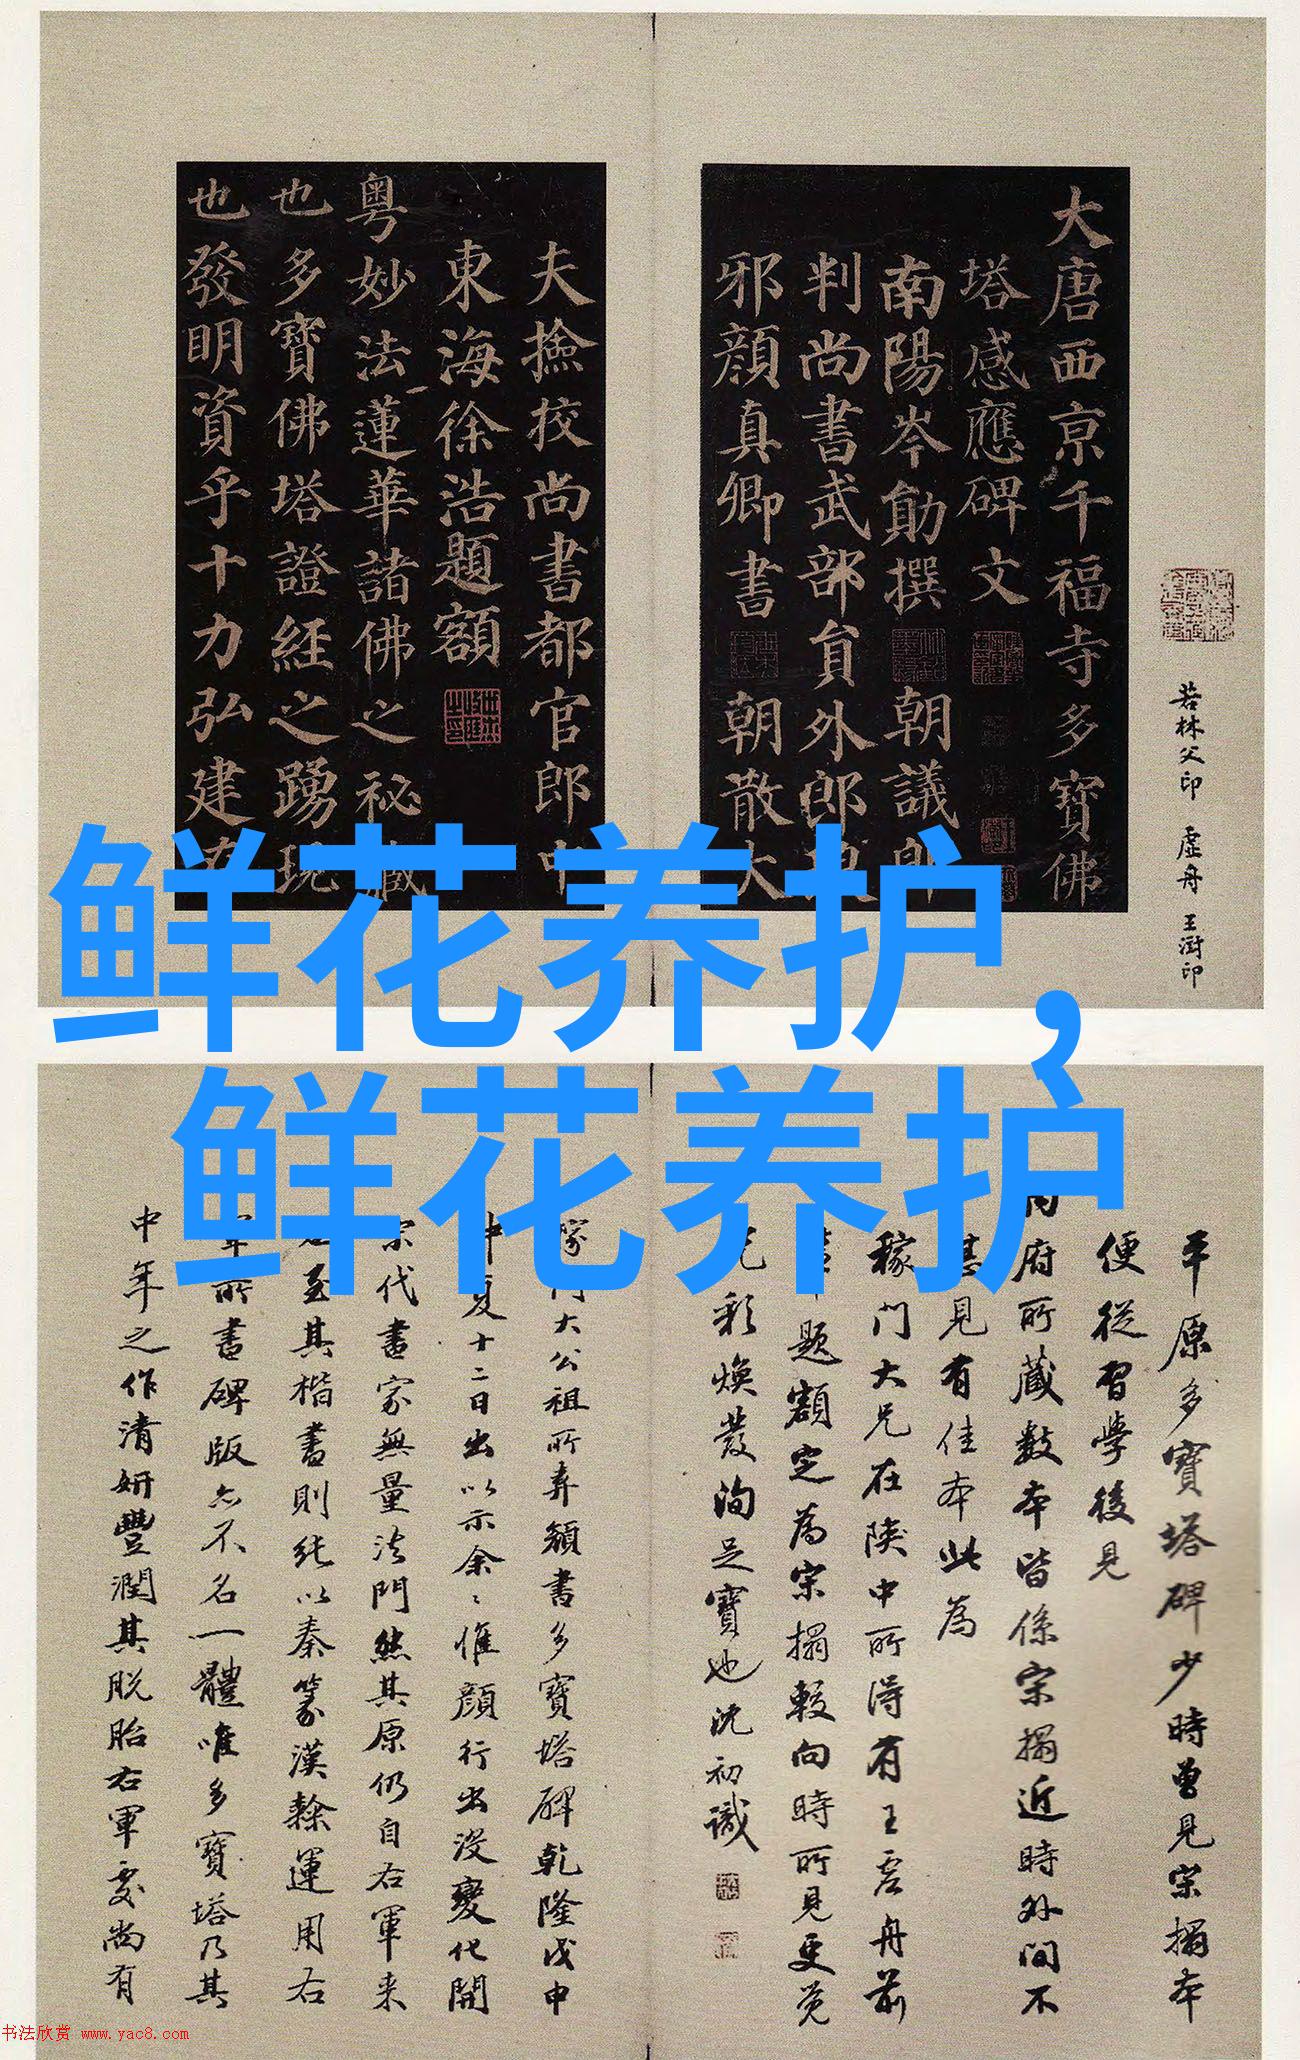 大唐西京千福寺多寶佛
塔感應碑文
南陽岑勛撰 朝議郎
判尚書武部員外郎
邪顔真卿書 朝散大
夫撿挍尚書都官郎中
東海徐浩題額
粤妙法蓮華諸佛之祕藏
也多寶佛塔證経之踴現
也發明資乎十力弘建
若林父印 虛舟 王澍印
鲜花养护，
鲜花养护
平原多寶塔碑少時曾見宋搨本
便從習學後見
府所藏數本皆係宋搨近時外間不
甚見有佳本此為
稼門大兄在陕中所得有王虛舟前
題額定為宋搨較向時所見更覺
光彩焕發洵足寶也沈初識
大公祖所弆顔書多寶塔碑乾隆戊申
中夏十二日出以示余〻惟顔行出没變化開
宋代書家無量法門然其原仍自右軍来
至其楷書則純以秦篆漢隸運用右
軍所書碑版亦不名一體唯多寶塔乃其
中年之作清妍豐潤其脱胎右軍處尚有
书法欣赏 www.yac8.com